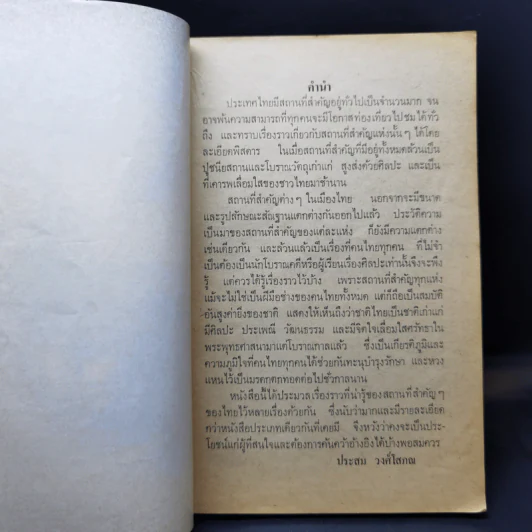 คำนำ
ประเทศไทยมีสถานที่สำคัญอยู่ทั่วไปเป็นจำนวนมาก จน
อาจพ้นความสามารถที่ทุกคนจะมีโอกาสท่องเที่ยวไปชมได้ทั่ว
ถึง และทราบเรื่องราวเกี่ยวกับสถานที่สำคัญแห่งนั้นๆ ได้โดย
ละเอียดพิสดาร ในเมื่อสถานที่สำคัญที่มีอยู่ทั้งหมดล้วนเป็น
ปูชนียสถานและโบราณวัตถุเก่าแก่ สูงส่งด้วยศิลปะ และเป็น
ที่เคารพเลื่อมใสของชาวไทยมาช้านาน
สถานที่สำคัญต่างๆ ในเมืองไทย นอกจากจะมีขนาด
และรูปลักษณะสัณฐานแตกต่างกันออกไปแล้ว ประวัติความ
เป็นมาของสถานที่สำคัญของแต่ละแห่ง ก็ยังมีความแตกต่าง
เช่นเดียวกัน และล้วนแล้วเป็นเรื่องที่คนไทยทุกคน ที่ไม่จำ
เป็นต้องเป็นนักโบราณคดีหรือผู้เรียนเรื่องศิลปะเท่านั้นจึงจะพึง
รู้ แต่ควรได้รู้เรื่องราวไว้บ้าง เพราะสถานที่สำคัญทุกแห่ง
แม้จะไม่ใช่เป็นฝีมือช่างของคนไทยทั้งหมด แต่ก็ถือเป็นสมบัติ
อันสูงค่ายิ่งของชาติ แสดงให้เห็นถึงว่าชาติไทยเป็นชาติเก่าแก่
มีศิลปะ ประเพณี วัฒนธรรม และมีจิตใจเลื่อมใสศรัทธาใน
พระพุทธศาสนามาแต่โบราณกาลแล้ว ซึ่งเป็นเกียรติภูมิและ
ความภูมิใจที่คนไทยทุกคนได้ช่วยกันทะนุบำรุงรักษา และหวง
แหนไว้เป็นมรดกตกทอดต่อไปชั่วกาลนาน
หนังสือนี้ได้ประมวลเรื่องราวที่น่ารู้ของสถานที่สำคัญๆ
ของไทยไว้หลายเรื่องด้วยกัน ซึ่งนับว่ามากและมีรายละเอียด
กว่าหนังสือประเภทเดียวกันที่เคยมี จึงหวังว่าคงจะเป็นประ-
โยชน์แก่ผู้ที่สนใจและต้องการค้นคว้าอ้างอิงได้บ้างพอสมควร
ประสม วงศ์โสภณ